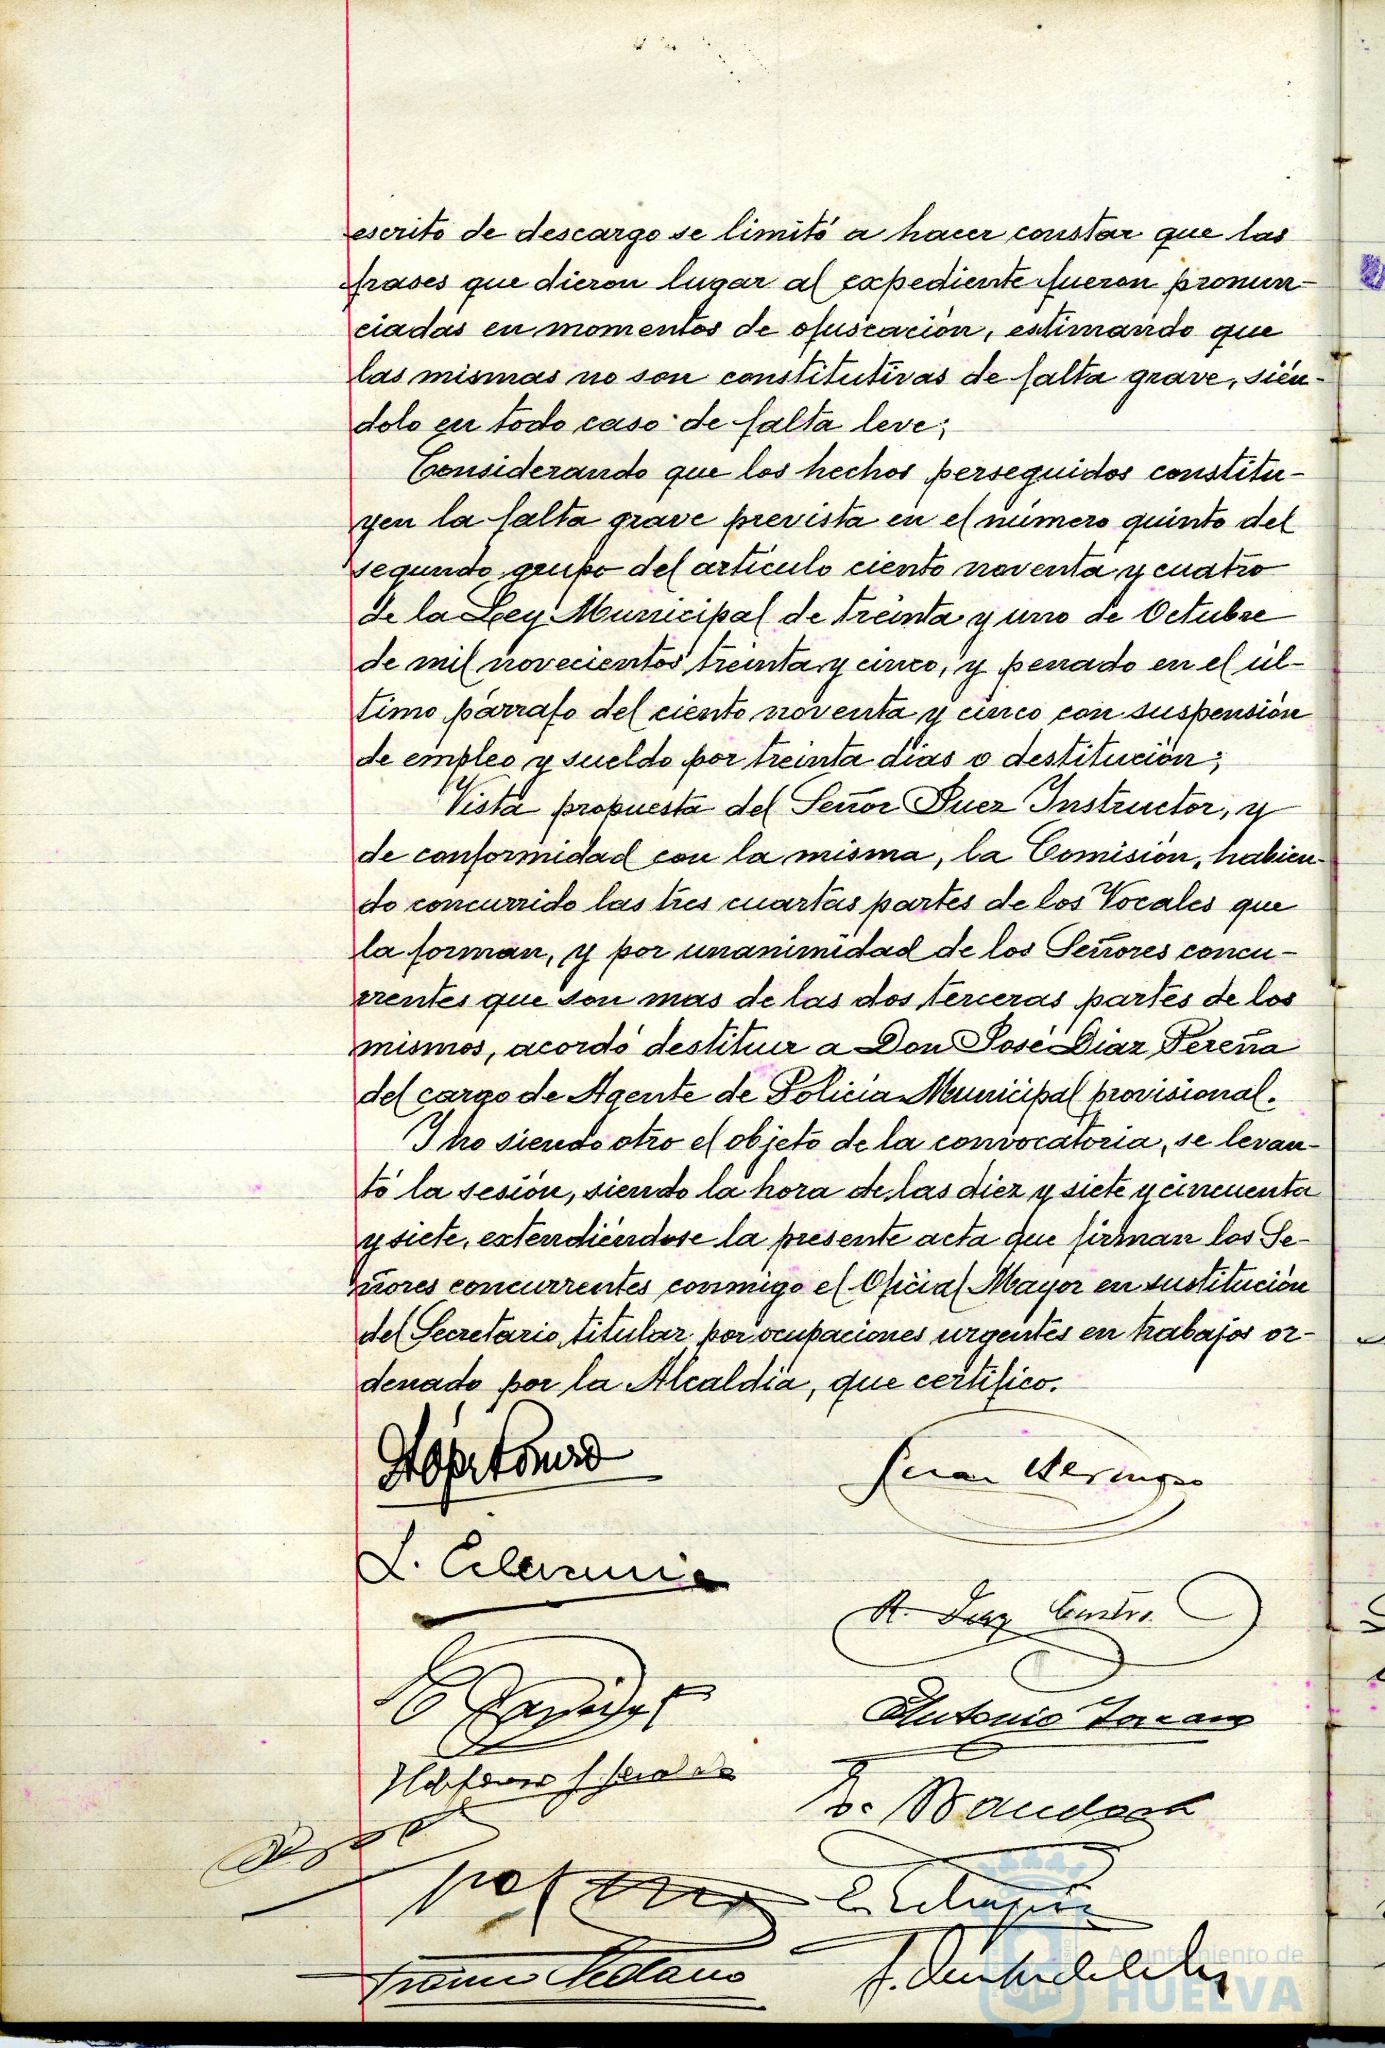 escrito de descargo se limitó a hacer constar que las
frases que dieron lugar al expediente fueron pronun-
ciadas en momentos de ofuscación, estimando que
las mismas no son constitutivas de falta grave, sién-
dolo en todo caso de falta leve;
Considerando que los hechos perseguidos constitu-
yen la falta grave prevista en el número quinto del
segundo grupo del artículo ciento noventa y cuatro
de la Ley Municipal de treinta y uno de Octubre
de mil novecientos treinta y cinco, y penado en el úl-
timo párrafo del ciento noventa y cinco con suspensión
de empleo y sueldo por treinta días o destitución;
Vista propuesta del Señor Juez Instructor, y
de conformidad con la misma, la Comisión, habien-
do concurrido las tres cuartas partes de los Vocales que
la forman, y por unanimidad de los Señores concu-
rrentes que son mas de las dos terceras partes de los
mismos, acordó destituir a Don José Díaz Pereña
del cargo de Agente de Policía Municipal provisional.
Y no siendo otro el objeto de la convocatoria, se levan-
tó la sesión, siendo la hora de las diez y siete y cincuenta
y siete, extendiéndose la presente acta que firman los Se-
ñores concurrentes conmigo el Oficial Mayor en sustitución
del Secretario titular por ocupaciones urgentes en trabajos or-
denado por la Alcaldía, que certifico.
Antonio
Ayuntamiento de
HUELVA